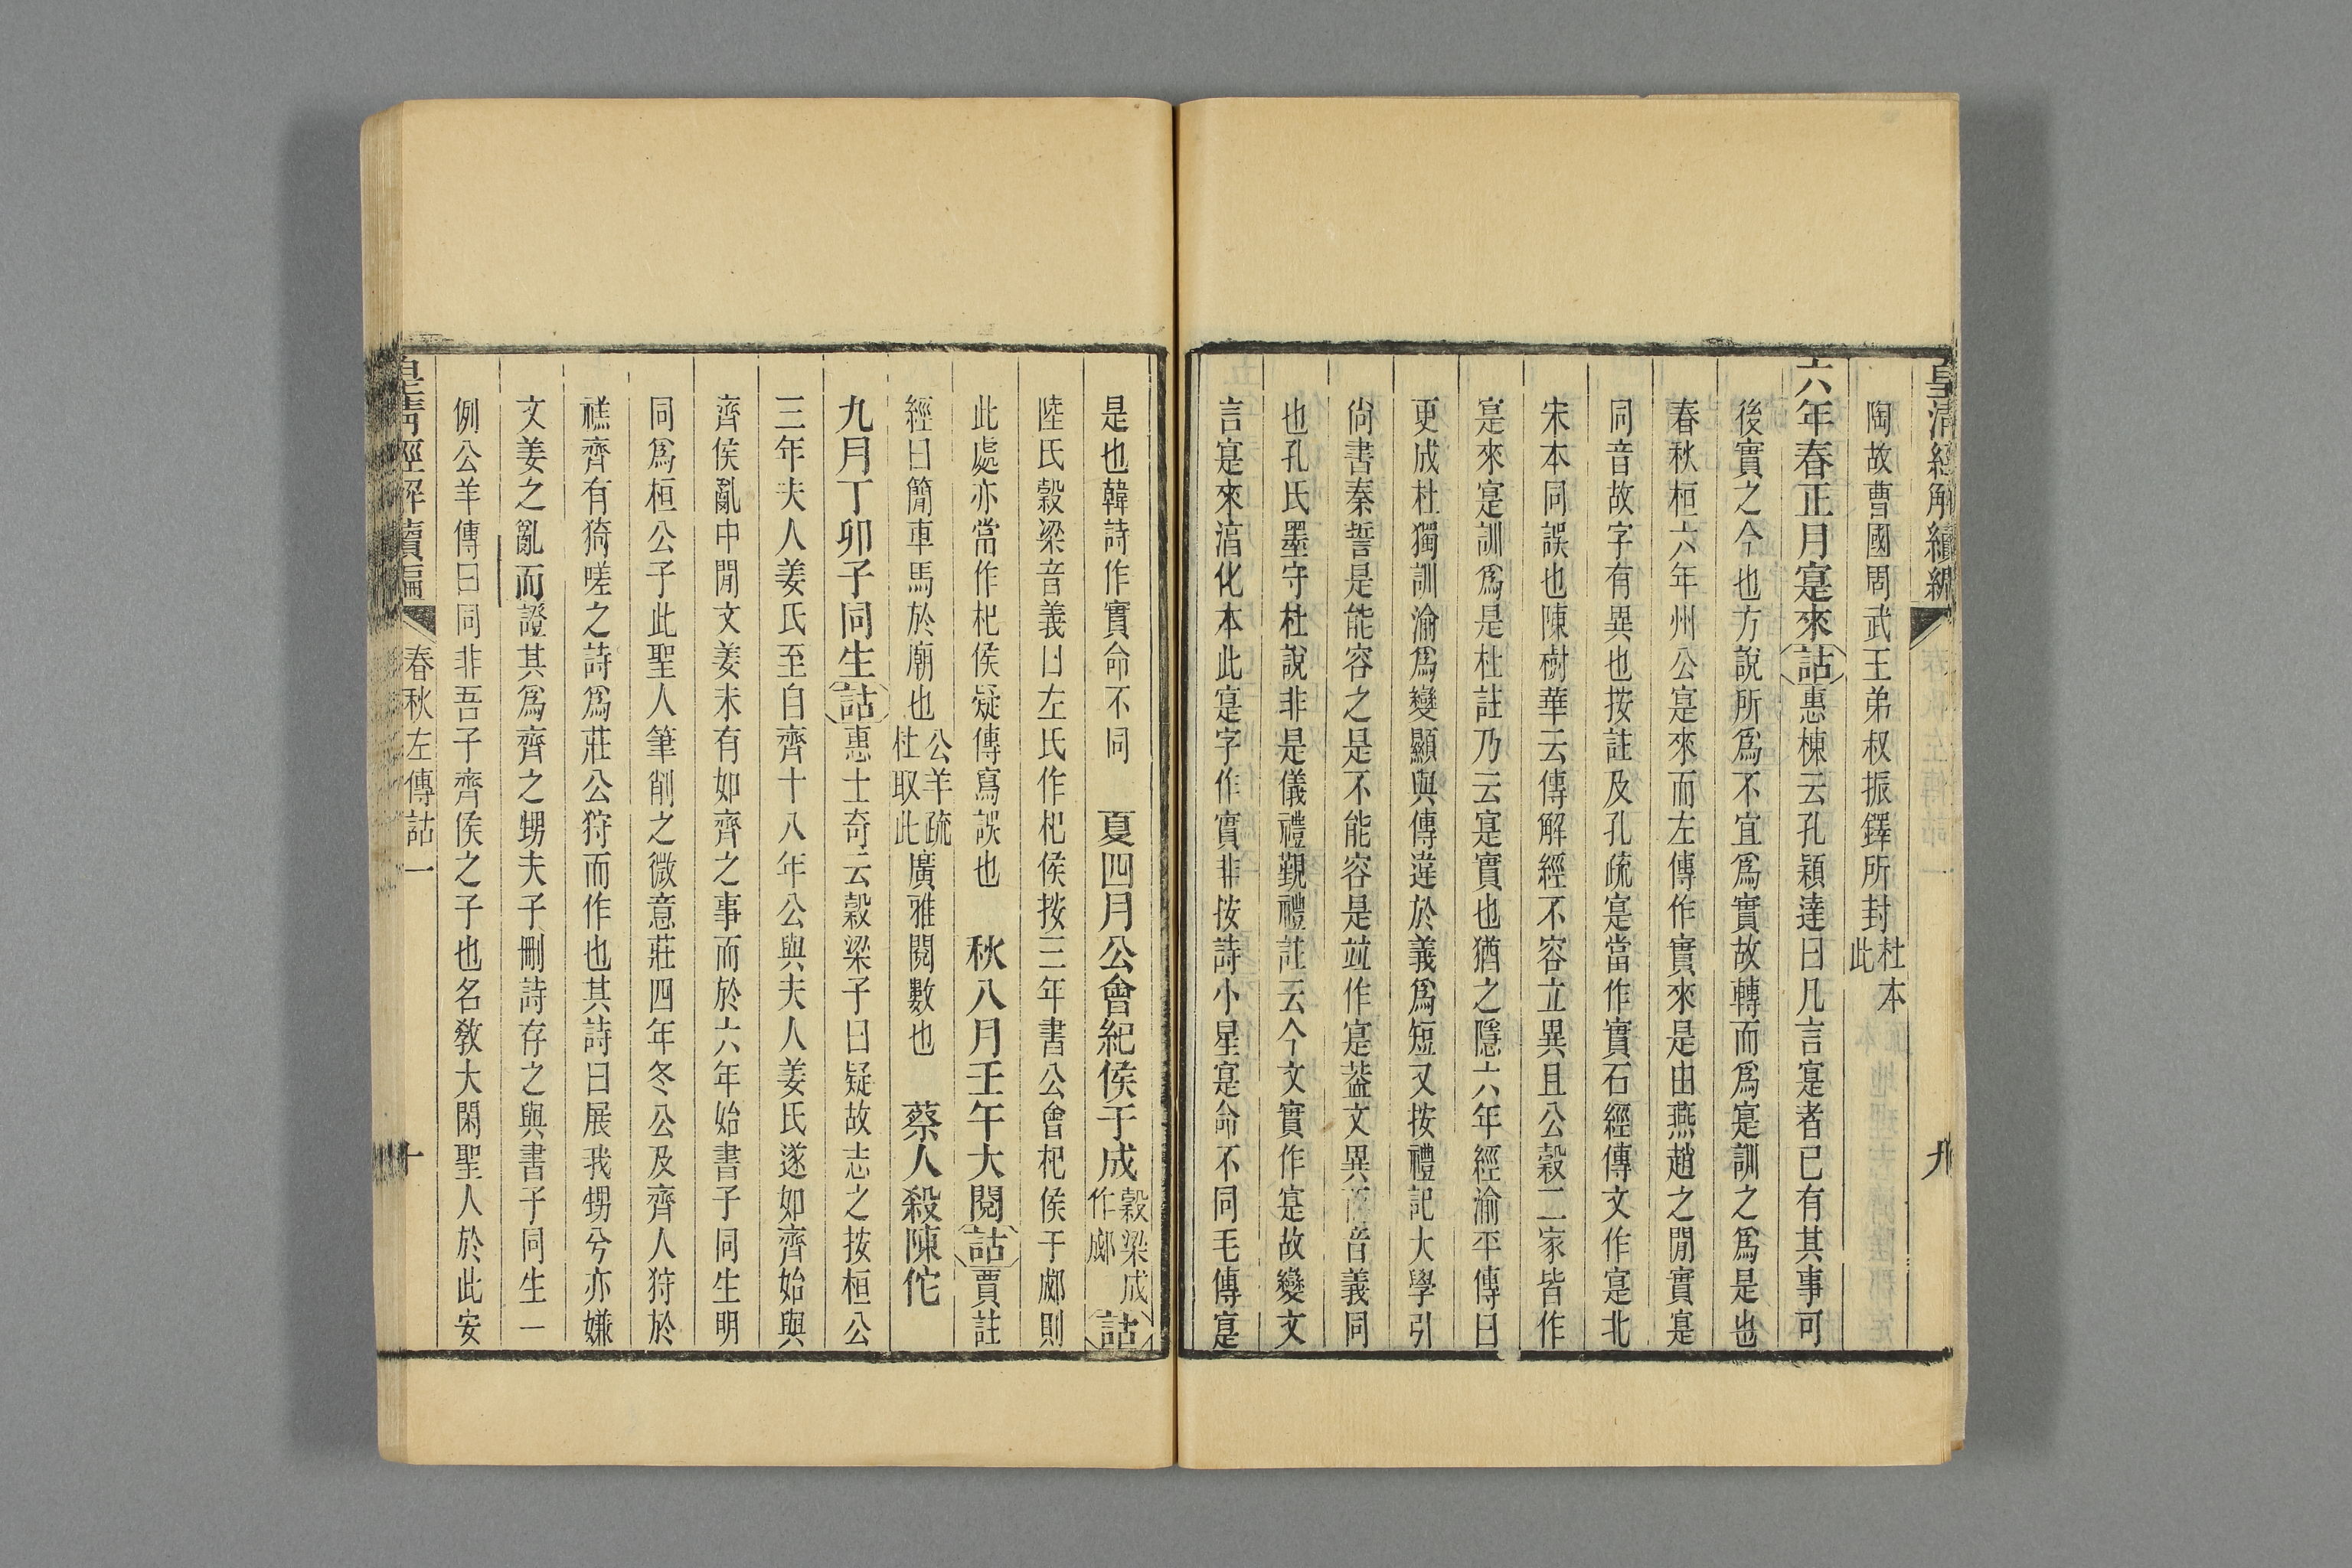 皇清經解續編
九
陶故曹國周武王弟叔振鐸所封杜本此
六年春正月寔來詁惠棟云孔穎達曰凡言寔者已有其事可
後實之今也方說所爲不宜爲實故轉而爲寔訓之爲是也
春秋桓六年州公寔來而左傳作實來是由燕趙之閒實寔
同音故字有異也按註及孔疏寔當作實石經傳文作寔北
宋本同誤也陳樹華云傳解經不容立異且公穀二家皆作
寔來寔訓爲是杜註乃云寔實也猶之隱六年經渝平傳曰
更成杜獨訓渝爲變顯與傳違於義爲短又按禮記大學引
尚書秦誓是能容之是不能容是竝作寔葢文異而音義同
也孔氏墨守杜說非是儀禮覲禮註云今文實作寔故變文
言寔來湻化本此寔字作實非按詩小星寔命不同毛傳寔
是也韓詩作實命不同　夏四月公會紀侯于成穀梁成作郕詁
陸氏穀梁音義曰左氏作杞侯按三年書公會杞侯于郕則
此處亦當作杞侯疑傳寫誤也　秋八月壬午大閱詁賈註
經曰簡車馬於廟也公羊疏杜取此廣雅閱數也　蔡人殺陳佗
九月丁卯子同生詁惠士奇云穀梁子曰疑故志之按桓公
三年夫人姜氏至自齊十八年公與夫人姜氏遂如齊始與
齊侯亂中閒文姜未有如齊之事而於六年始書子同生明
同爲桓公子此聖人筆削之微意莊四年冬公及齊人狩於
禚齊有猗嗟之詩爲莊公狩而作也其詩曰展我甥兮亦嫌
文姜之亂而證其爲齊之甥夫子刪詩存之與書子同生一
例公羊傳曰同非吾子齊侯之子也名教大閑聖人於此安
皇清經解續編
春秋左傳詁一
十